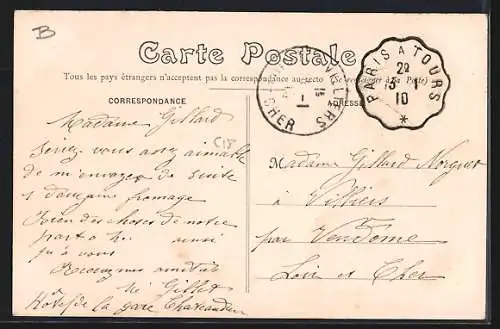 B
Carte Postale
Tous les pays étrangers n'acceptent pas la correspondance au recto (Se renseigner à la Poste)
CORRESPONDANCE
ADRESSE
PARIS A TOURS
2º
3 - 1
10
*
VILLIERS
CHER
C18
Madame Gillard
Seriez vous assez aimable
de m'envoyer de suite
1 douzaine fromage
Bien des choses de notre
part à          ainsi
qu'à vous
Recevez mes amitiés
Gillet
Hôtel de la gare Chateaudun
Madame Gillard Norguet
à Villiers
par Vendome
Loir et Cher